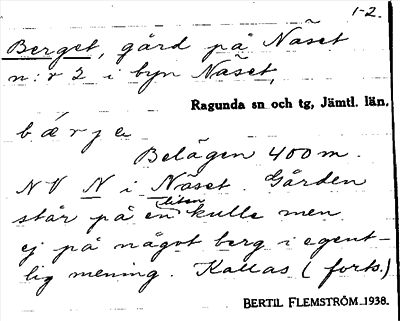 1-2.
Berget, gård på Näset
n:r 2 i byn Näset,
Ragunda sn och tg, Jämtl. län.
bærje
Belägen 400 m.
NV N i Näset. Gården
står på en liten kulle men
ej på något berg i egent-
lig mening. Kallas (forts.)
BERTIL FLEMSTRÖM 1938.